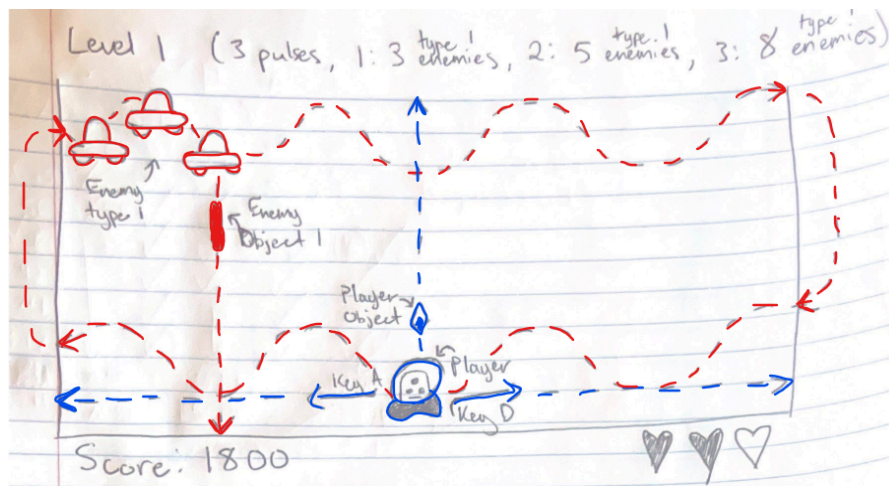 Level 1 (3 pulses, 1: 3 type 1 enemies, 2: 5 type 1 enemies, 3: 8 type 1 enemies)
Enemy
type 1
Enemy
Object 1
Player
Object
Player
Key A
Key D
Score: 1800